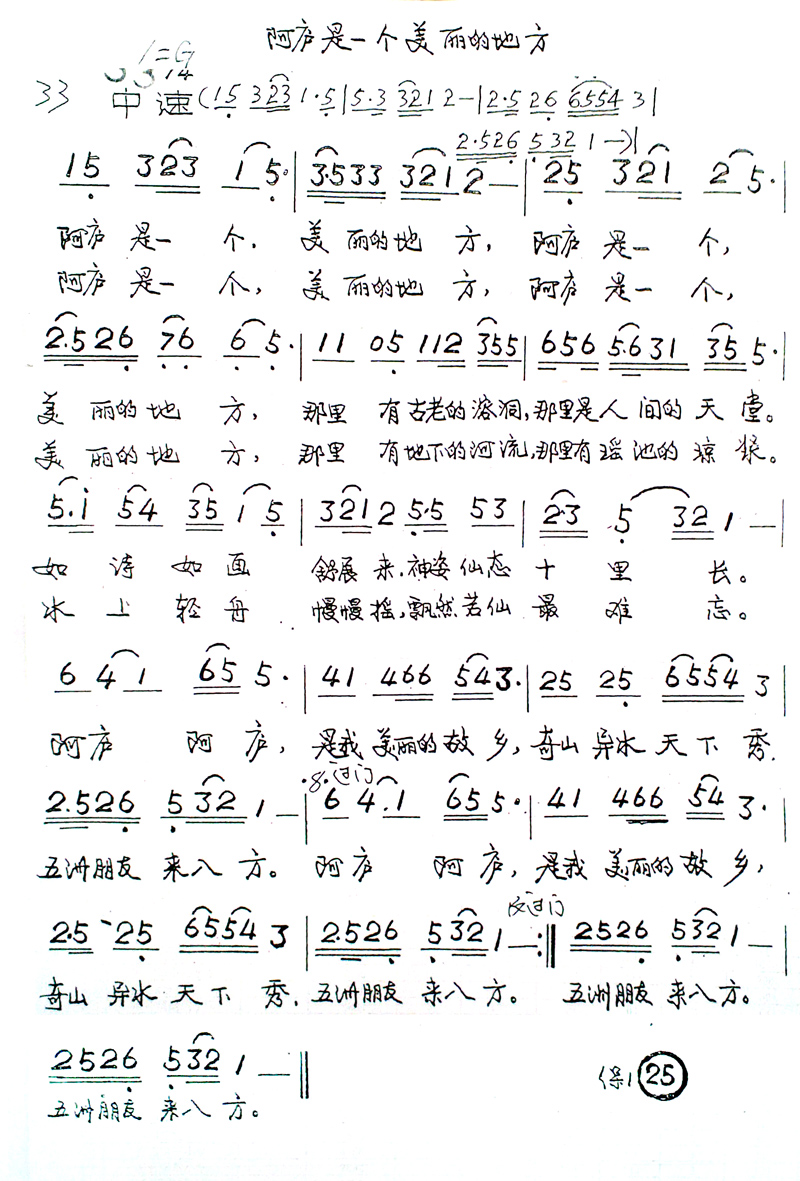 阿庐是一个美丽的地方
1=G
4
33 中速 (15 323 1·5|5·3 3212-|2·5 26 6554 3|
2·526 532 1-)|
15 323 1 5·|3·533 3212-|25 321 2 5·|
阿庐 是一 个, 美 丽的地 方, 阿庐 是一 个,
阿庐 是一 个, 美 丽的地 方, 阿庐 是一 个,
2·526 76 6 5·|11 05 112 355|656 5·631 35 5·|
美 丽的地 方, 那里 有古老的溶洞,那里是人间的天堂。
美 丽的地 方, 那里 有地下的河流,那里有瑶池的琼浆。
5·1 54 35 1 5|3212 5·5 53|2·3 5 32 1-|
如 诗 如画 舒展 来,神姿仙态 十 里 长。
水 上 轻舟 慢慢摇,飘然若仙 最 难 忘。
6 4 1 65 5·|41 466 543·|25 25 6554 3|
阿庐 阿庐, 是我 美丽的故乡,奇山 异水 天下秀,
·8·过门
2·526 532 1-|6 4·1 65 5·|41 466 54 3·|
五洲朋友 来八方。 阿庐 阿庐, 是我 美丽的故乡,
反过门
2·5 25 6554 3|2·526 532 1-:‖2526 532 1-|
奇山 异水 天下 秀, 五洲朋友 来八方。 五洲朋友 来八方。
2526 532 1-‖
五洲朋友 来八方。
25